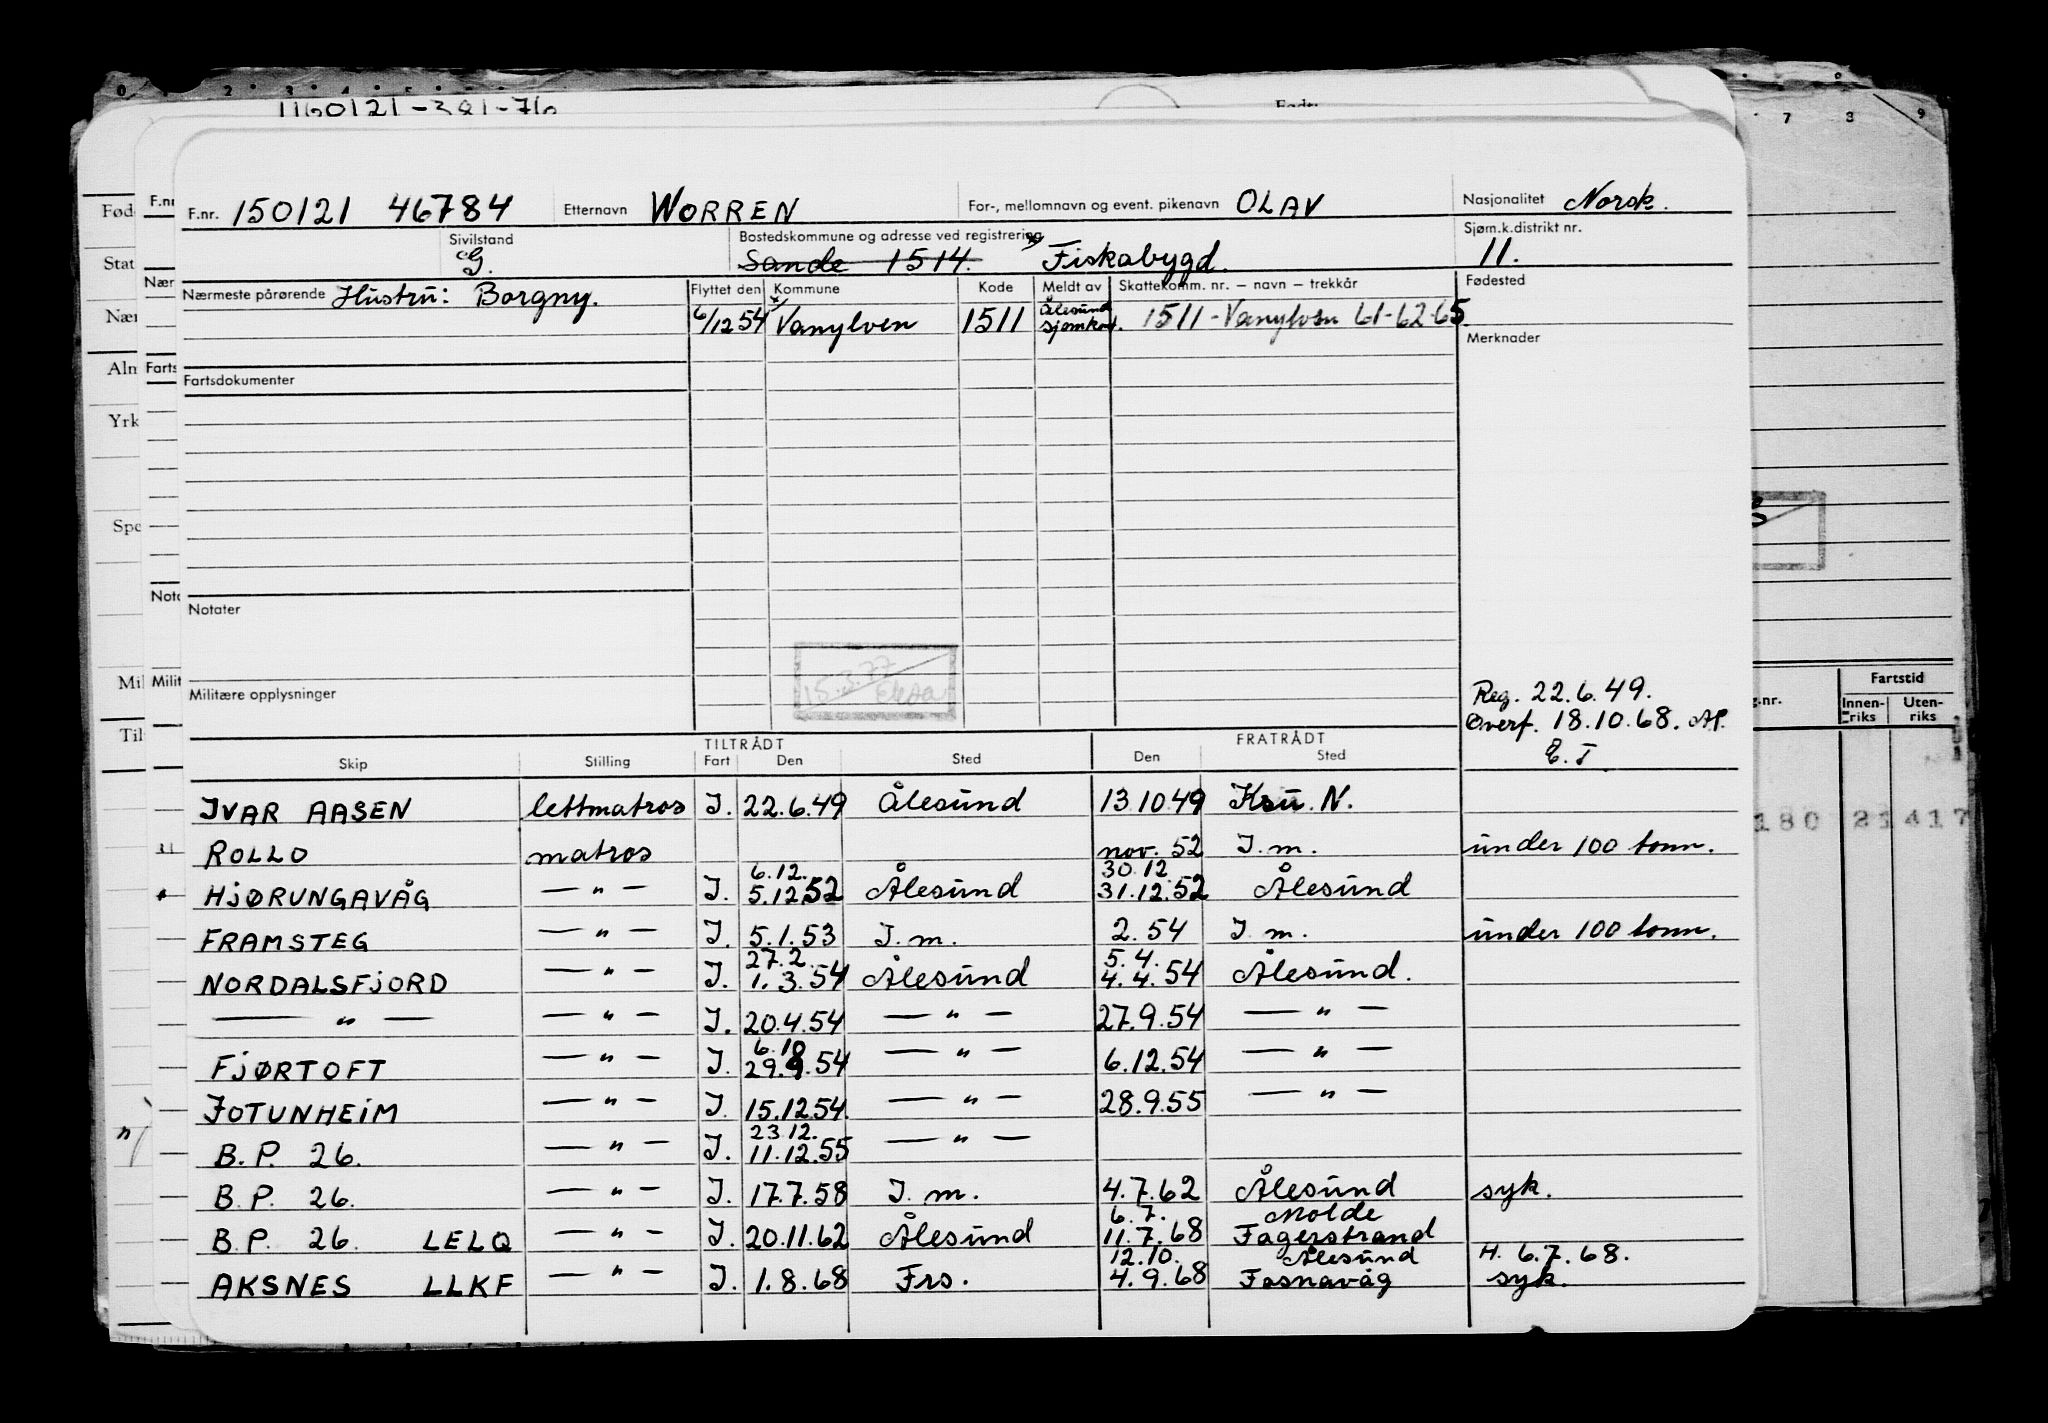 0 2 3 4 5 7 8 9
1160121-381-76
Født:
F.nr. 150121 46784 Etternavn WORREN For-, mellomnavn og event. pikenavn OLAV Nasjonalitet Norsk.
Sivilstand G. Bostedskommune og adresse ved registrering Sande 1514. Fiskabygd. Sjøm.k.distrikt nr. 11.
Nærmeste pårørende Hustru: Borgny. Flyttet den Kommune Kode Meldt av Skattekomm. nr. – navn – trekkår Fødested
6/12 54 Vanylven 1511 Ålesund sjømkont. 1511 - Vanylven 61-62-65
Merknader
Fartsdokumenter
Notater
15.3.77
Militære opplysninger
Reg. 22.6.49.
Overf. 18.10.68. AP.
E.T
TILTRÅDT FRATRÅDT
Skip Stilling Fart Den Sted Den Sted
IVAR AASEN lettmatros I. 22.6.49 Ålesund 13.10.49 Ksu. N.
ROLLO matros nov. 52 I. m. under 100 tonn.
6.12. 30.12
HJØRUNGAVÅG — " — I. 5.12.52 Ålesund 31.12.52 Ålesund
FRAMSTEG — " — I. 5.1.53 I. m. 2.54 I m. under 100 tonn.
27.2. 5.4.
NORDALSFJORD — " — I. 1.3.54 Ålesund 4.4.54 Ålesund.
— " — — " — I. 20.4.54 — " — 27.9.54 — " —
6.10
FJØRTOFT — " — I. 29.9.54 — " — 6.12.54 — " —
JOTUNHEIM — " — I. 15.12.54 28.9.55 — " —
23.12.
B.P. 26. — " — I. 11.12.55 — " —
B.P. 26. — " — I. 17.7.58 I. m. 4.7.62 Ålesund syk.
6.7. Molde
B.P. 26. LELQ — " — I. 20.11.62 Ålesund 11.7.68 Fagerstrand
12.10. Ålesund H. 6.7.68.
AKSNES LLKF — " — I. 1.8.68 Frs. 4.9.68 Fosnavåg syk.
Fød
Stat
Nær
Alm
Yrk
Spe
Mil
Til
F.nr
Nær
Farts
Nota
Milit
g.nr. Fartstid
Innen-riks Uten-riks
180 21417